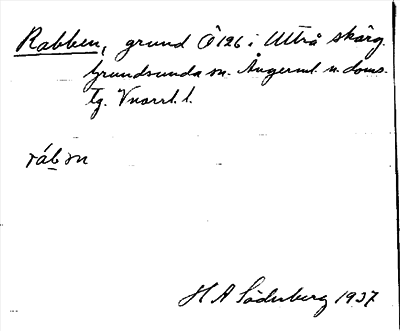 Rabben, grund Ö 126 i Ulvå skärg.
Grundsunda sn. Ångerml. n. doms.
tg. Vnorrl. l.
rábm
H A Söderberg 1937